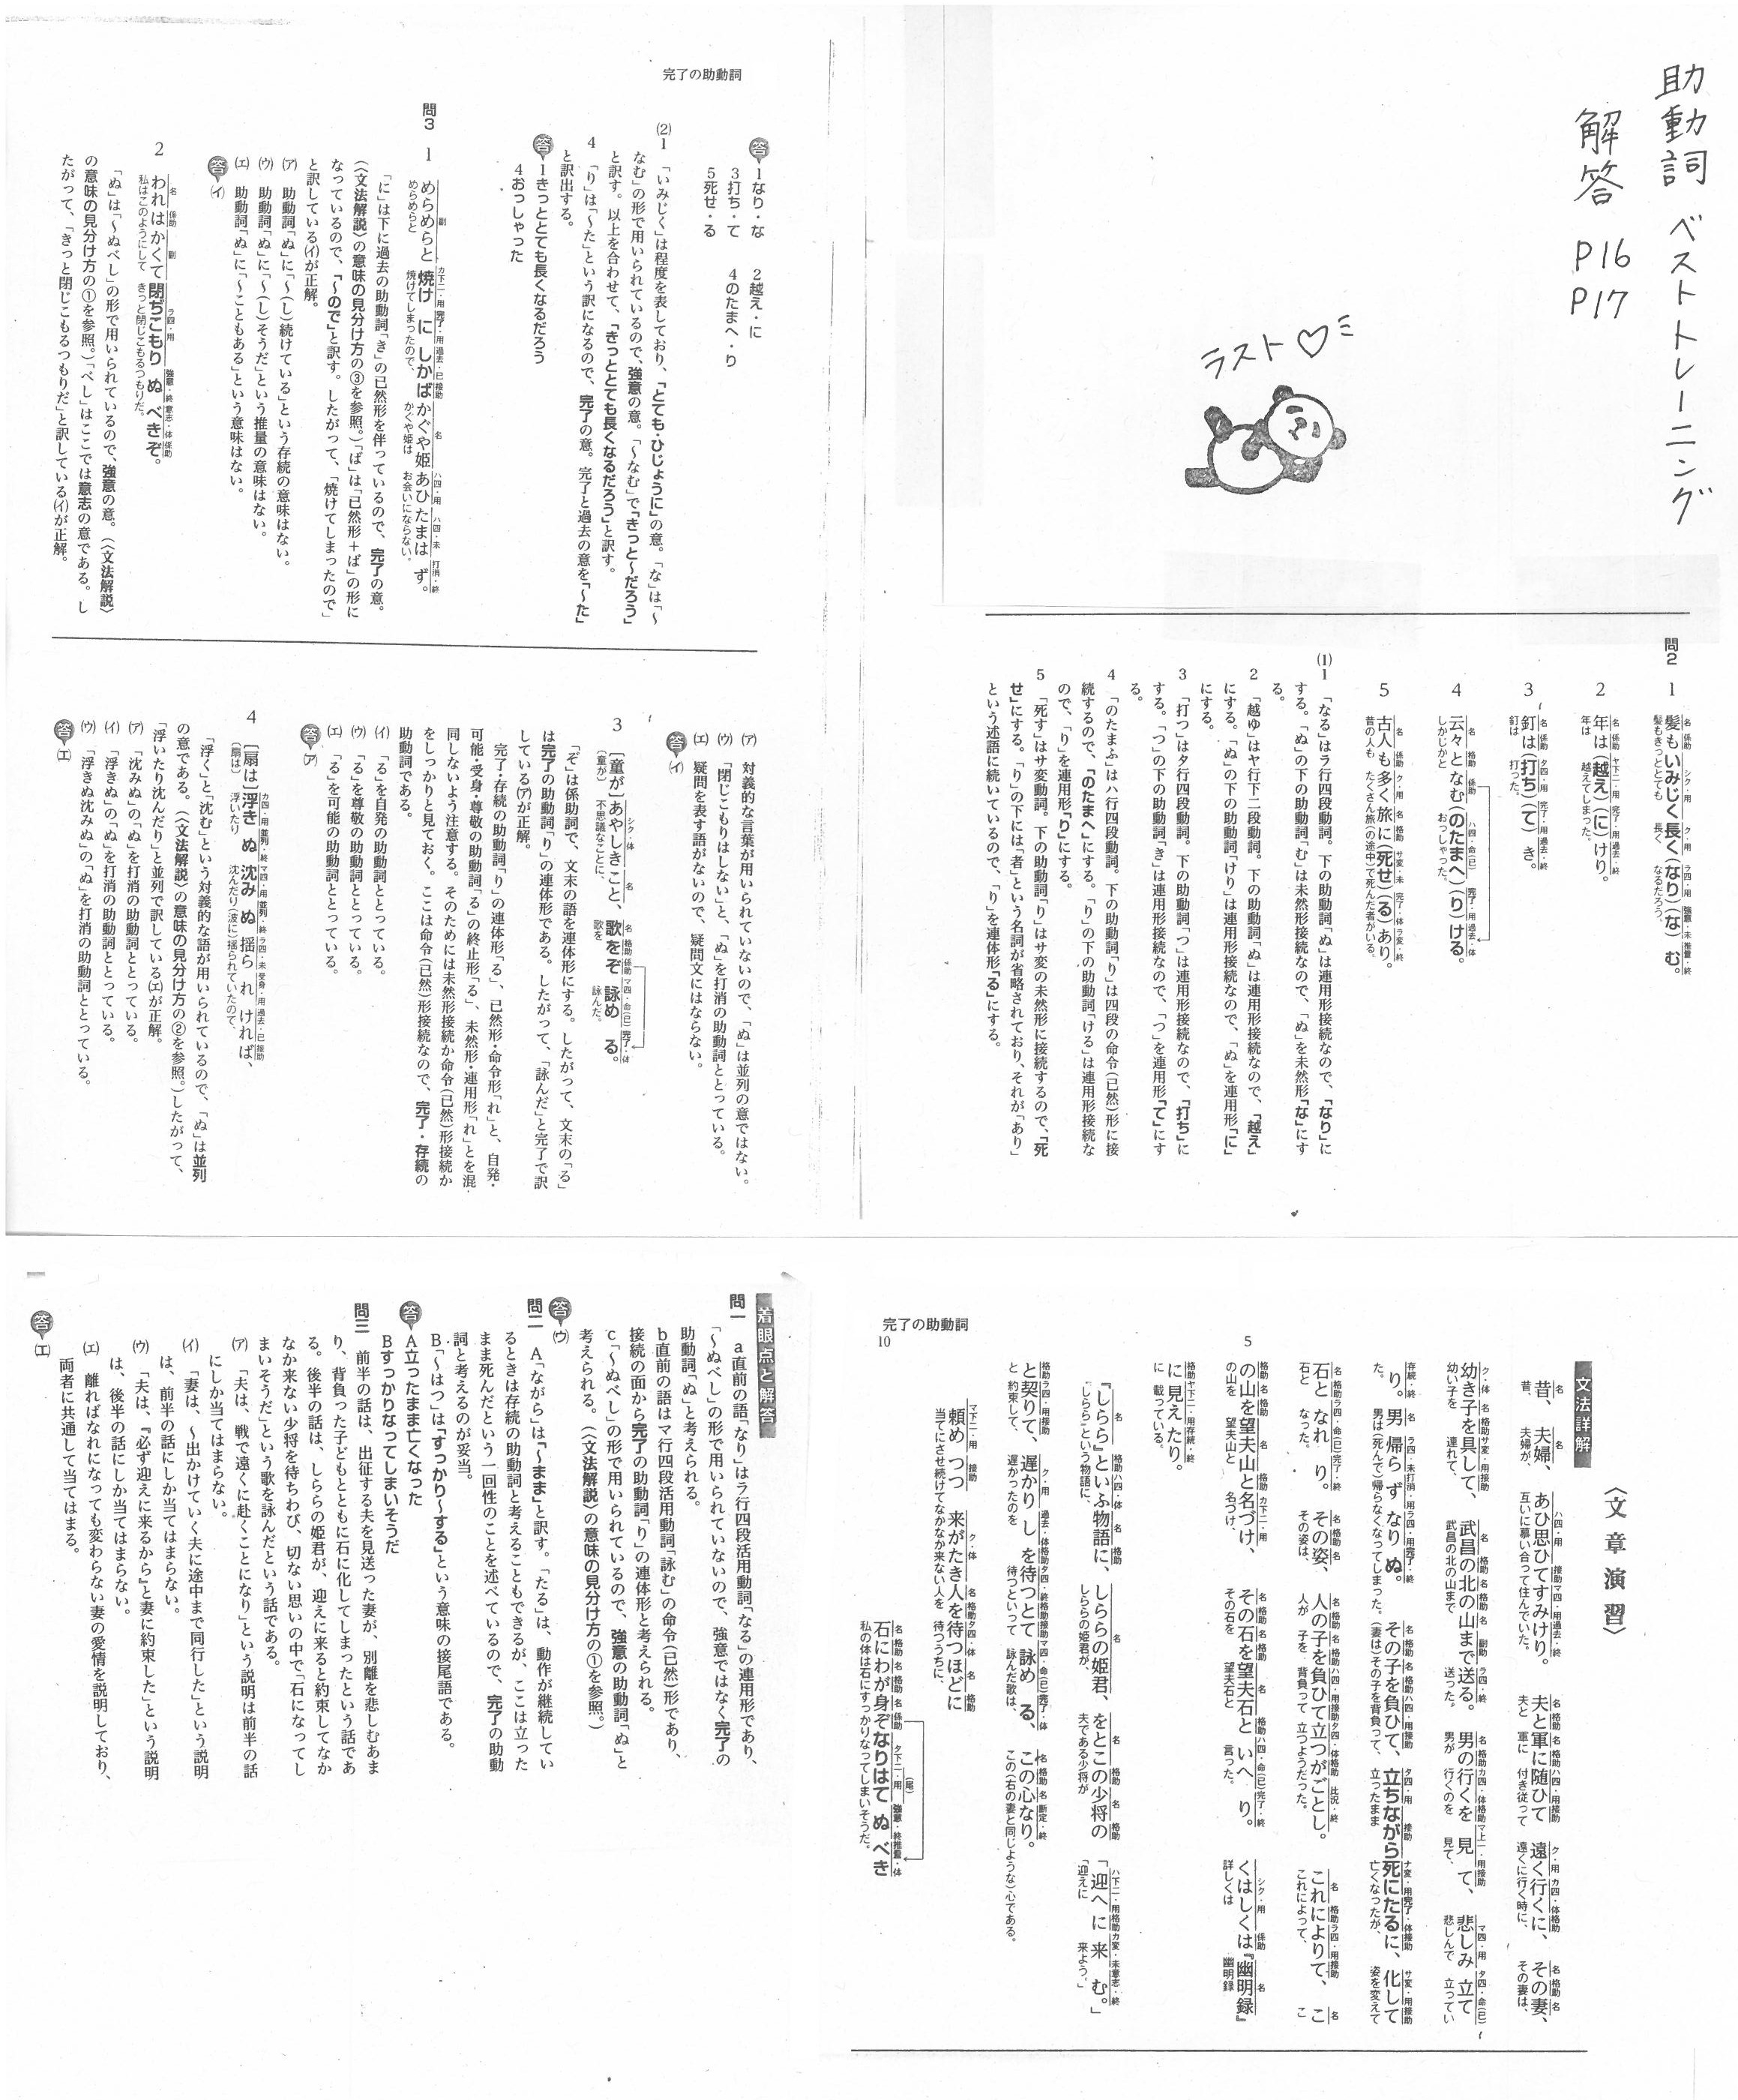 助動詞 ベストトレーニング
解答 P16
P17
ラスト♡
問2
1 髪もいみじく長く(なり)(な)む。
髪もきっととても 長く なるだろう。
2 年は(越え)(に)けり。
年は 越えてしまった。
3 釘は(打ち)(て)き。
釘は 打った。
4 云々となむ(のたまへ)(り)ける。
しかじかと おっしゃった。
5 古人も多く旅に(死せ)(る)あり。
昔の人も たくさん旅(の途中)で死んだ者がいる。
(1)
1 「なる」はラ行四段動詞。下の助動詞「ぬ」は連用形接続なので、「なり」に
する。「ぬ」の下の助動詞「む」は未然形接続なので、「ぬ」を未然形「な」にす
る。
2 「越ゆ」はヤ行下二段動詞。下の助動詞「ぬ」は連用形接続なので、「越え」
にする。「ぬ」の下の助動詞「けり」は連用形接続なので、「ぬ」を連用形「に」
にする。
3 「打つ」はタ行四段動詞。下の助動詞「つ」は連用形接続なので、「打ち」に
する。「つ」の下の助動詞「き」は連用形接続なので、「つ」を連用形「て」にす
る。
4 「のたまふ」はハ行四段動詞。下の助動詞「り」は四段の命令(已然)形に接
続するので、「のたまへ」にする。「り」の下の助動詞「ける」は連用形接続な
ので、「り」を連用形「り」にする。
5 「死す」はサ変動詞。下の助動詞「り」はサ変の未然形に接続するので、「死
せ」にする。「り」の下には「者」という名詞が省略されており、それが「あり」
という述語に続いているので、「り」を連体形「る」にする。
完了の助動詞
答 1なり・な 2越え・に
3打ち・て 4のたまへ・り
5死せ・る
(2)
1 「いみじく」は程度を表しており、「とても・ひじょうに」の意。「な」は「〜
なむ」の形で用いられているので、強意の意。「〜なむ」で「きっと〜だろう」
と訳す。以上を合わせて、「きっととても長くなるだろう」と訳す。
4 「り」は「〜た」という訳になるので、完了の意。完了と過去の意を「〜た」
と訳出する。
答 1きっととても長くなるだろう
4おっしゃった
問3
1 めらめらと焼けにしかばかぐや姫あひたまはず。
めらめらと 焼けてしまったので、 かぐや姫は お会いにならない。
「に」は下に過去の助動詞「き」の已然形を伴っているので、完了の意。
(〈文法解説〉の意味の見分け方の③を参照。)「ば」は「已然形+ば」の形に
なっているので、「〜ので」と訳す。したがって、「焼けてしまったので」
と訳している(イ)が正解。
(ア) 助動詞「ぬ」に「〜(し)続けている」という存続の意味はない。
(ウ) 助動詞「ぬ」に「〜(し)そうだ」という推量の意味はない。
(エ) 助動詞「ぬ」に「〜こともある」という意味はない。
答 (イ)
2 われはかくて閉ぢこもりぬべきぞ。
私はこのようにして きっと閉じこもるつもりだ。
「ぬ」は「〜ぬべし」の形で用いられているので、強意の意。(〈文法解説〉
の意味の見分け方の①を参照。)「べし」はここでは意志の意である。し
たがって、「きっと閉じこもるつもりだ」と訳している(イ)が正解。
(ア) 対義的な言葉が用いられていないので、「ぬ」は並列の意ではない。
(ウ) 「閉じこもりはしない」と、「ぬ」を打消の助動詞ととっている。
(エ) 疑問を表す語がないので、疑問文にはならない。
答 (イ)
3 〔童が〕あやしきこと、歌をぞ詠める。
(童が) 不思議なことに、 歌を 詠んだ。
「ぞ」は係助詞で、文末の語を連体形にする。したがって、文末の「る」
は完了の助動詞「り」の連体形である。したがって、「詠んだ」と完了で訳
している(ア)が正解。
完了・存続の助動詞「り」の連体形「る」、已然形・命令形「れ」と、自発・
可能・受身・尊敬の助動詞「る」の終止形「る」、未然形・連用形「れ」とを混
同しないよう注意する。そのためには未然形接続か命令(已然)形接続か
をしっかりと見ておく。ここは命令(已然)形接続なので、完了・存続の
助動詞である。
(イ) 「る」を自発の助動詞ととっている。
(ウ) 「る」を尊敬の助動詞ととっている。
(エ) 「る」を可能の助動詞ととっている。
答 (ア)
4 〔扇は〕浮きぬ沈みぬ揺られければ、
(扇は) 浮いたり 沈んだり(波に)揺られていたので、
「浮く」と「沈む」という対義的な語が用いられているので、「ぬ」は並列
の意である。(〈文法解説〉の意味の見分け方の②を参照。)したがって、
「浮いたり沈んだり」と並列で訳している(エ)が正解。
(ア) 「沈みぬ」の「ぬ」を打消の助動詞ととっている。
(イ) 「浮きぬ」の「ぬ」を打消の助動詞ととっている。
(ウ) 「浮きぬ沈みぬ」の「ぬ」を打消の助動詞ととっている。
答 (エ)
〈文章演習〉
文法詳解
昔、夫婦、あひ思ひてすみけり。夫と軍に随ひて遠く行くに、その妻、
昔、 夫婦が、 互いに慕い合って住んでいた。 夫と 軍に 付き従って 遠くに行く時に、 その妻は、
幼き子を具して、武昌の北の山まで送る。男の行くを見て、悲しみ立て
幼い子を 連れて、 武昌の北の山まで 送った。 男が 行くのを 見て、 悲しんで 立ってい
り。男帰らずなりぬ。その子を負ひて、立ちながら死にたるに、化して
た。 男は(死んで)帰らなくなってしまった。(妻は)その子を背負って、 立ったまま 亡くなったが、 姿を変えて
石となれり。その姿、人の子を負ひて立つがごとし。これによりて、こ
石と なった。 その姿は、 人が 子を 背負って 立つようだった。 これによって、 こ
5
の山を望夫山と名づけ、その石を望夫石といへり。くはしくは『幽明録』
の山を 望夫山と 名づけ、 その石を 望夫石と 言った。 詳しくは 幽明録
に見えたり。
に 載っている。
『しらら』といふ物語に、しららの姫君、をとこの少将の「迎へに来む。」
『しらら』という物語に、 しららの姫君が、 夫である少将が 「迎えに 来よう。」
と契りて、遅かりしを待つとて詠める、この心なり。
と 約束して、 遅かったのを 待つといって 詠んだ歌は、 この(右の妻と同じような)心である。
頼めつつ来がたき人を待つほどに
当てにさせ続けてなかなか来ない人を 待つうちに、
完了の助動詞
10
石にわが身ぞなりはてぬべき
私の体は石にすっかりなってしまいそうだ。
着眼点と解答
問一 a直前の語「なり」はラ行四段活用動詞「なる」の連用形であり、
「〜ぬべし」の形で用いられていないので、強意ではなく完了の
助動詞「ぬ」と考えられる。
b直前の語はマ行四段活用動詞「詠む」の命令(已然)形であり、
接続の面から完了の助動詞「り」の連体形と考えられる。
c「〜ぬべし」の形で用いられているので、強意の助動詞「ぬ」と
考えられる。(〈文法解説〉の意味の見分け方の①を参照。)
答 (ウ)
問二 A「ながら」は「〜まま」と訳す。「たる」は、動作が継続してい
るときは存続の助動詞と考えることもできるが、ここは立った
まま死んだという一回性のことを述べているので、完了の助動
詞と考えるのが妥当。
B「〜はつ」は「すっかり〜する」という意味の接尾語である。
答 A立ったまま亡くなった
Bすっかりなってしまいそうだ
問三 前半の話は、出征する夫を見送った妻が、別離を悲しむあま
り、背負った子どもとともに石に化してしまったという話であ
る。後半の話は、しららの姫君が、迎えに来ると約束してなか
なか来ない少将を待ちわび、切ない思いの中で「石になってし
まいそうだ」という歌を詠んだという話である。
(ア) 「夫は、戦で遠くに赴くことになり」という説明は前半の話
にしか当てはまらない。
(イ) 「妻は、〜出かけていく夫に途中まで同行した」という説明
は、前半の話にしか当てはまらない。
(ウ) 「夫は、『必ず迎えに来るから』と妻に約束した」という説明
は、後半の話にしか当てはまらない。
(エ) 離ればなれになっても変わらない妻の愛情を説明しており、
両者に共通して当てはまる。
答 (エ)